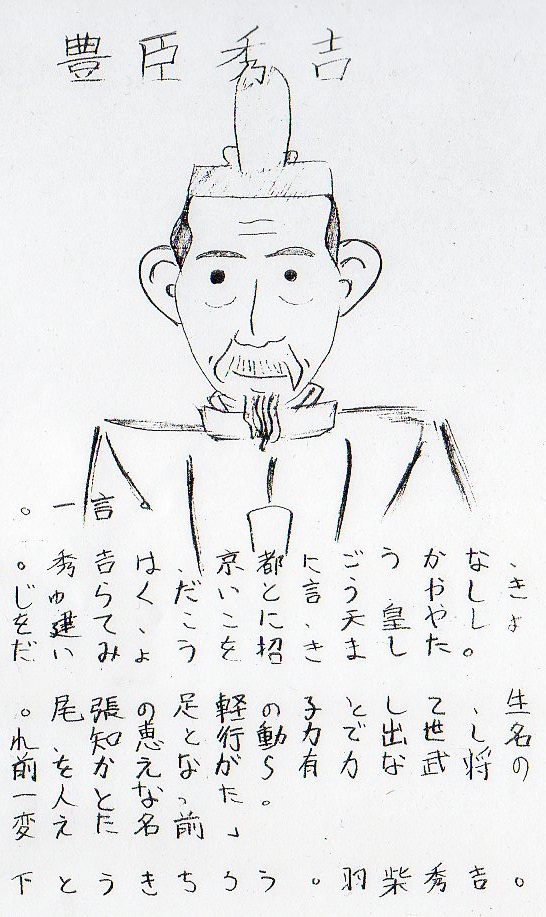 豊臣秀吉
。一言。
。秀吉は、京都にごうかな、
じゅらくだいと言うやしき
を建て、ここに、天皇やしょ
だいみょうを招きました。
。尾張の足軽の子として、生
れ、知恵と行動力で出世し名
前をかえながら有力な武将の
一人とな、た。
変えた名前」
下とうきちろう。羽柴秀吉。